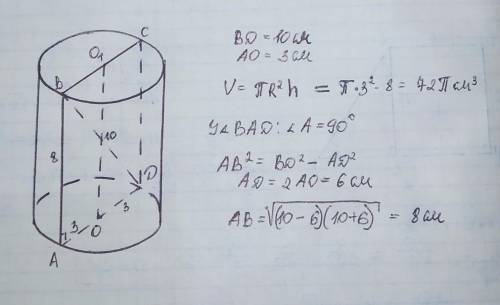 C
O₁
B
10
8
D
3
O
3
A
BD = 10 см
AO = 3 см
V = πR²h = π·3²·8 = 72π см³
У ∠BAD: ∠A = 90°
AB² = BD² - AD²
AD = 2AO = 6 см
AB = √(10-6)(10+6) = 8 см